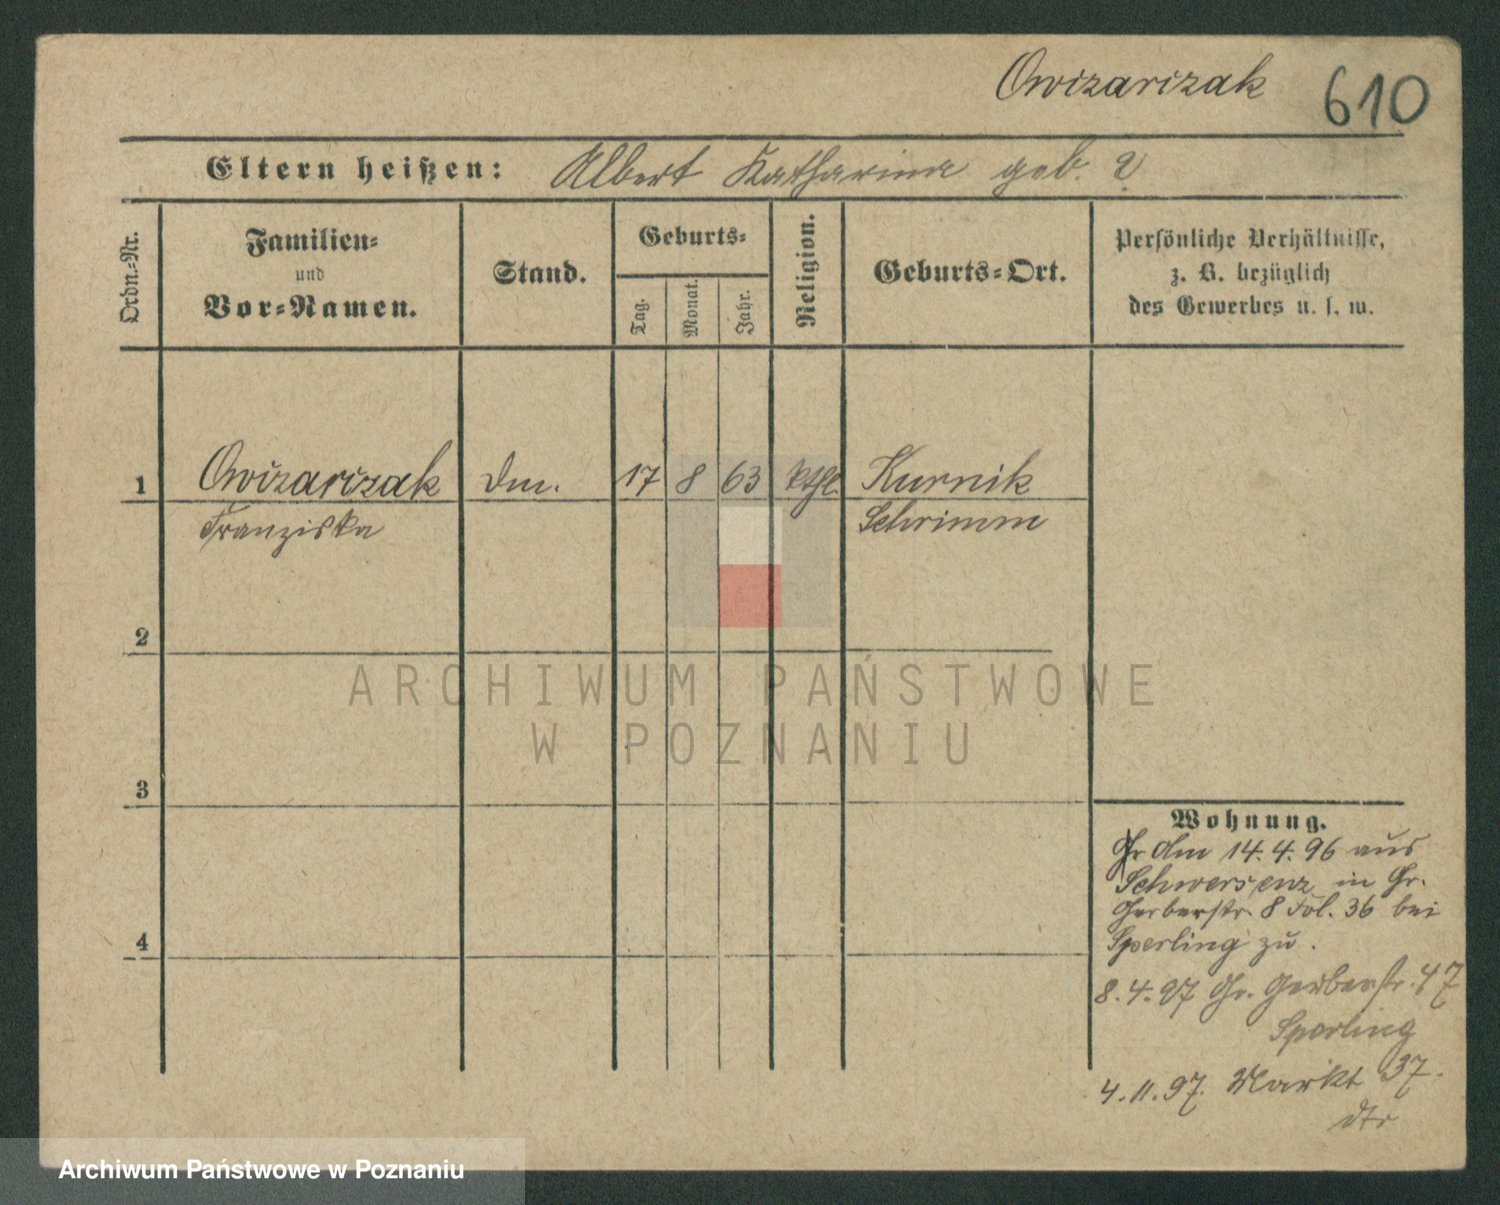 Owizarizak 610
Eltern heißen: Albert Katharina geb. ?
Ordn.-Nr.
Familien-
und
Vor-Namen.
Stand.
Geburts-
Tag.
Monat.
Jahr.
Religion.
Geburts-Ort.
Persönliche Verhältnisse,
z. B. bezüglich
des Gewerbes u. s. w.
1 Owizarizak Dm. 17 8 63 kthl. Kurnik
Franziska Schrimm
2
3
4
Wohnung.
dm 14.4.96 aus
Schwersenz in Gr.
Gerberstr. 8 Fol. 36 bei
Sperling zu.
8.4.97 Gr. Gerberstr. 47
Sperling
4.11.97. Markt 37.
ARCHIWUM PAŃSTWOWE
W POZNANIU
Archiwum Państwowe w Poznaniu